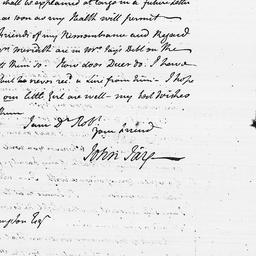 shall be explained at large in a future Letter
as soon as my Health will permit
friends of my Remembrance and Regard
Meredith are in Mr. Jay's Debt on the
How does Duer do. I have
but have never recd a Line from him. I hope
our little Girl are well - my best Wishes
them
I am Dr Robt.
Your friend
John Jay
Esqr